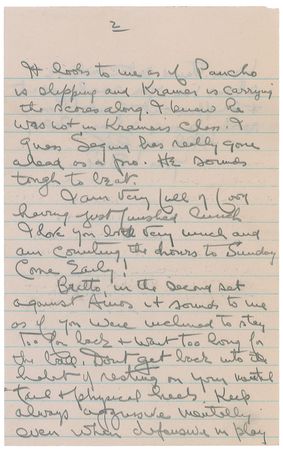 2
It looks to me as if Pancho
is slipping and Kramer is carrying
the scores along. I knew he
was not in Kramers class. I
guess Segura has really gone
ahead as a pro. He sounds
tough to beat.
I am very full of food
having just finished lunch
I love you both very much and
am counting the hours to Sunday
Come Early!
in the second set
against it sounds to me
as if you were inclined to stay
too far back & wait too long for
the ball. Dont get back into the
habit of resting on your mental
& physical heels. Keep
always aggressive mentally
even when defensive in play